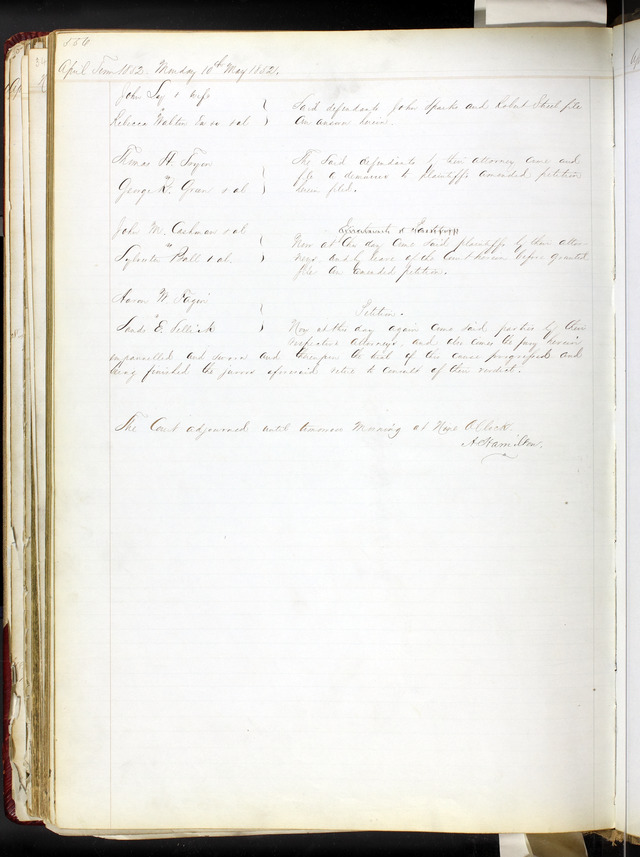 556
April Term 1852. Monday 10th May 1852.
John Loy & wife
vs
Rebecca Walton & al
Said defendants John Sparks and Robert Steel file
An answer herein.
Thomas H.
vs
George R. Grant & al
The Said defendants by their attorney came and
file a demurrer to plaintiffs amended petition
herein filed.
John M. Cashman & al
vs
Sylvester Ball & al
Now at this day came said plaintiffs by their attor-
neys, and by leave of the Court herein before granted
files an Amended Petition.
Aaron W. Fagin
vs
Sands E. Sellick
Petition.
Now at this day again came said parties by their
respective attorneys, and also comes the jury herein
impannelled and sworn and thereupon the trial of this cause progressed and
being finished the jurors aforesaid retire to consult of their verdict.
The Court adjourned until tomorrow Morning at Nine OClock.
A. Hamilton.